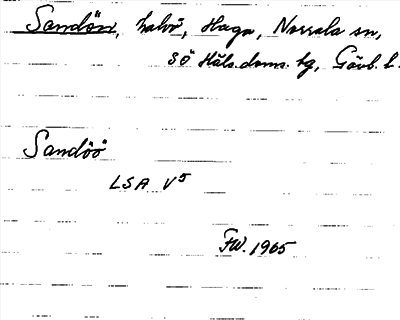 Sandön, halvö, Haga, Norrala sn,
Sö Häls.doms. hg, Gävl. l.
Sandöö
LSA V5
FW. 1965